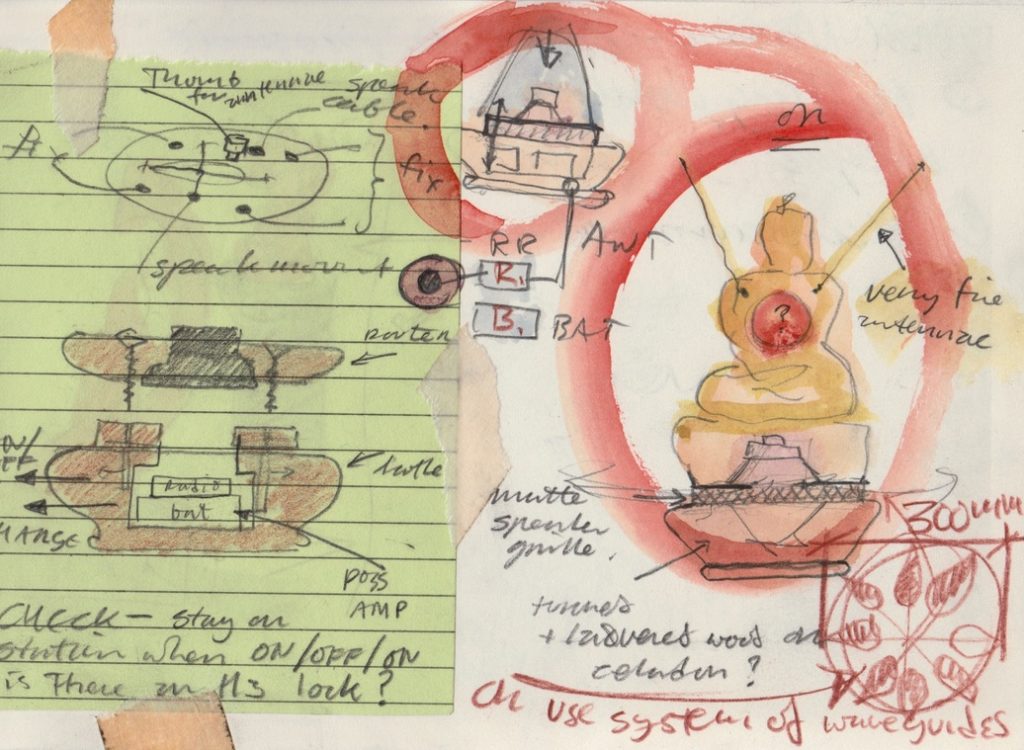 Thumb
for antennae
speak
cable.
fix
speak mount
router
ON/
OFF
lathe
radio
bat
CHARGE
poss
AMP
CHECK – stay on
station when ON/OFF/ON
is there an H3 lock?
RR
ANT
R.
B.
BAT
on
?
very fine
antennae
matte
speaker
grille.
turned
+ lacquered wood on
celadon?
300mm
CH USE system of waveguides